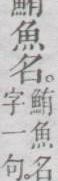 鮪魚名。
鮪魚名
字一句。